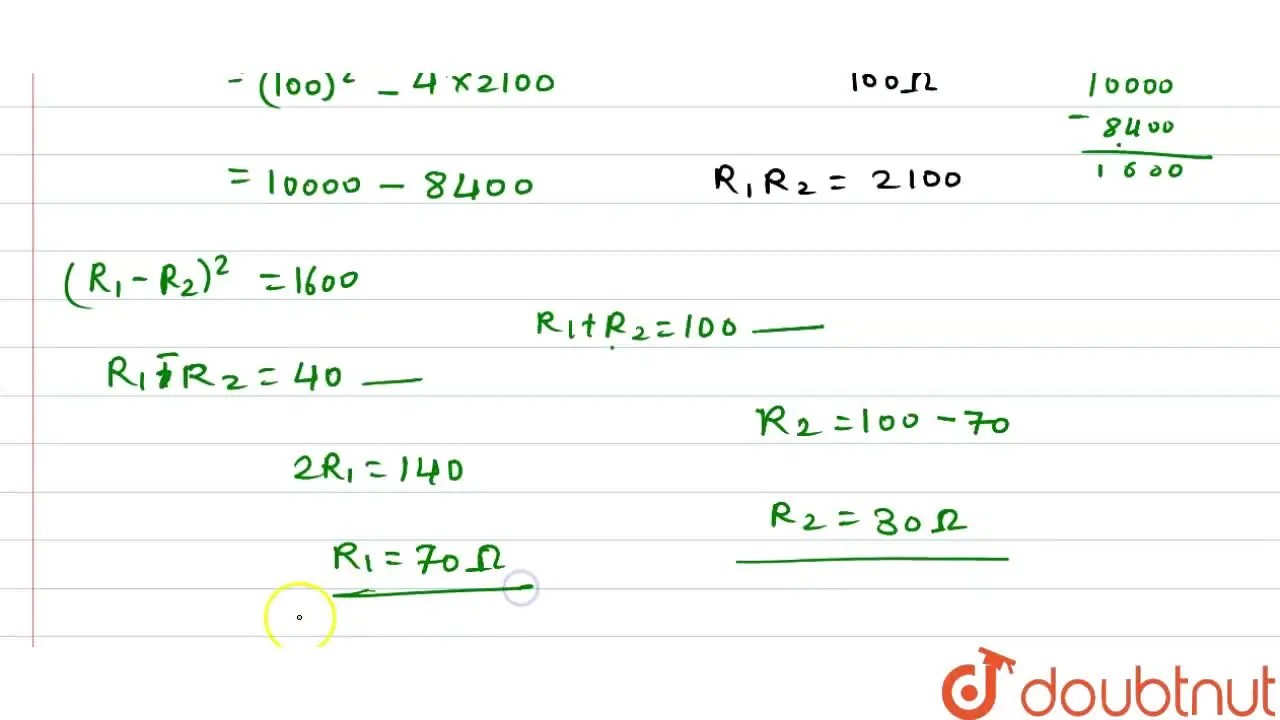 = (100)² - 4×2100
100Ω
10000
- 8400
1600
= 10000 - 8400
R₁R₂ = 2100
(R₁ - R₂)² = 1600
R₁ + R₂ = 100 —
R₁ - R₂ = 40 —
R₂ = 100 - 70
2R₁ = 140
R₂ = 30Ω
R₁ = 70Ω
doubtnut